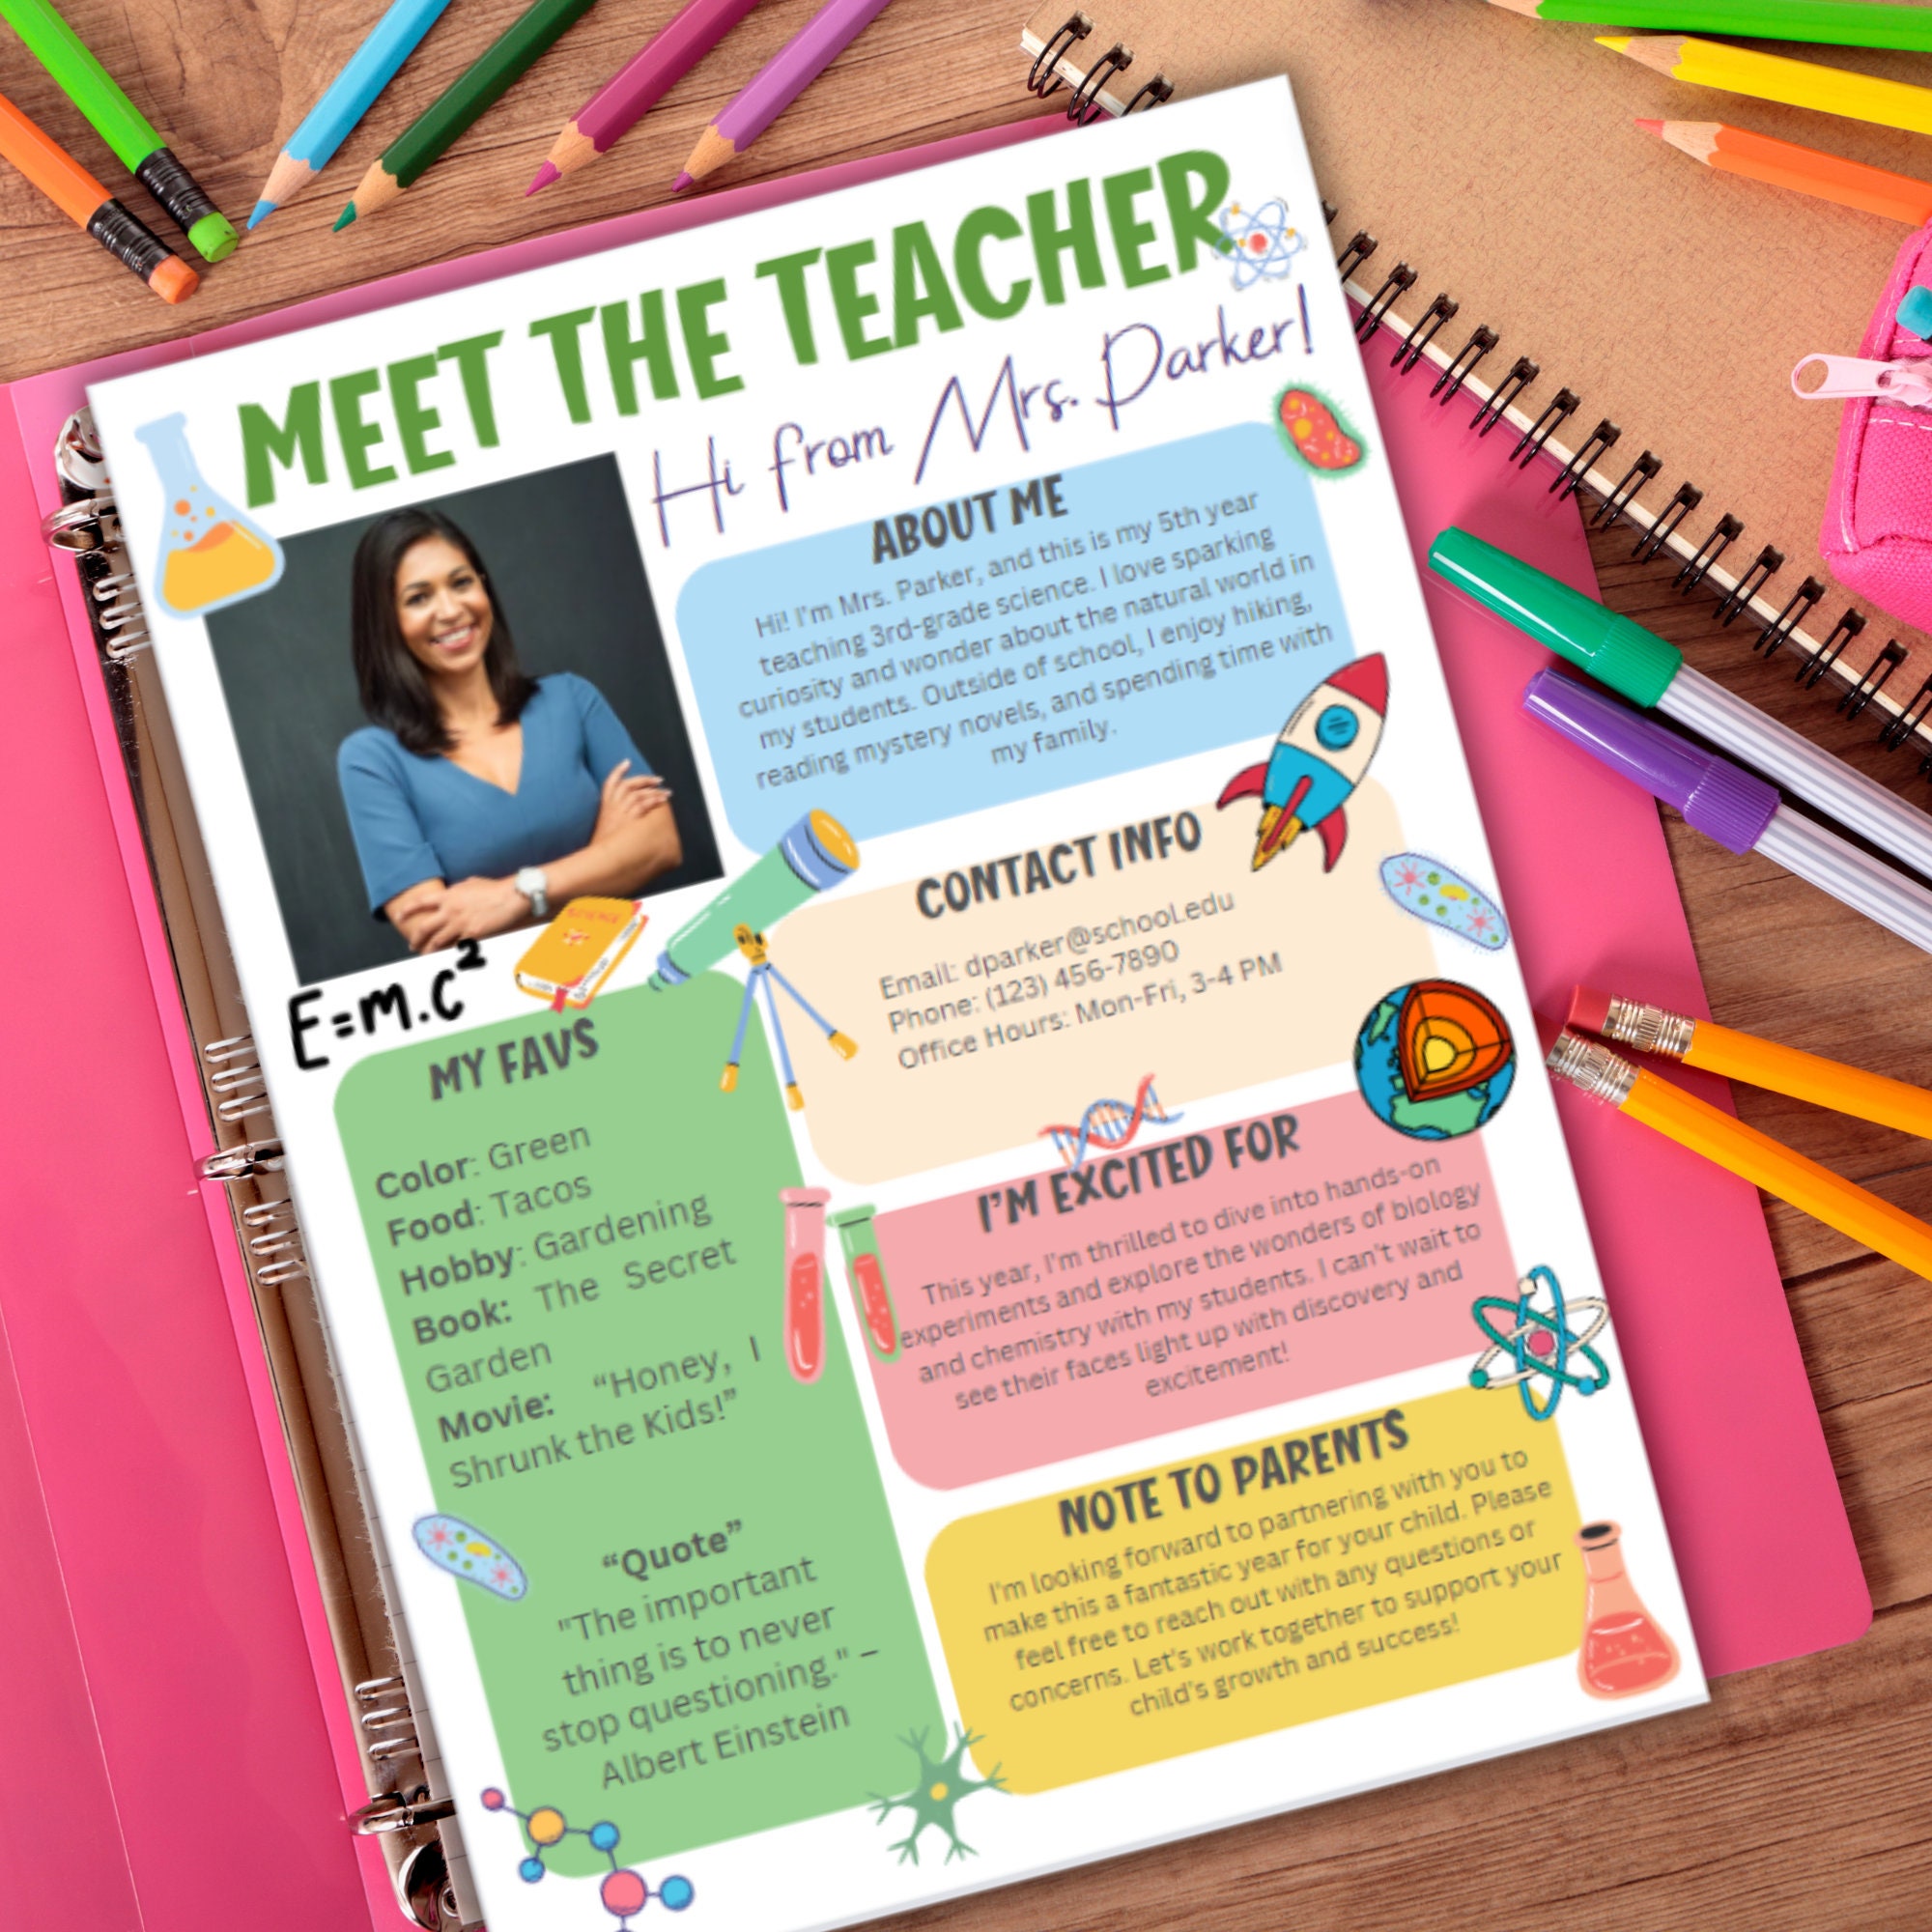 MEET THE TEACHER
Hi from Mrs. Parker!
ABOUT ME
Hi! I'm Mrs. Parker, and this is my 5th year
teaching 3rd-grade science. I love sparking
curiosity and wonder about the natural world in
my students. Outside of school, I enjoy hiking,
reading mystery novels, and spending time with
my family.
CONTACT INFO
Email: dparker@school.edu
Phone: (123) 456-7890
Office Hours: Mon-Fri, 3-4 PM
SCIENCE
E=m.c²
MY FAVS
Color: Green
Food: Tacos
Hobby: Gardening
Book: The Secret
Garden
Movie: “Honey, I
Shrunk the Kids!”
“Quote”
"The important
thing is to never
stop questioning." –
Albert Einstein
I'M EXCITED FOR
This year, I'm thrilled to dive into hands-on
experiments and explore the wonders of biology
and chemistry with my students. I can't wait to
see their faces light up with discovery and
excitement!
NOTE TO PARENTS
I'm looking forward to partnering with you to
make this a fantastic year for your child. Please
feel free to reach out with any questions or
concerns. Let's work together to support your
child's growth and success!